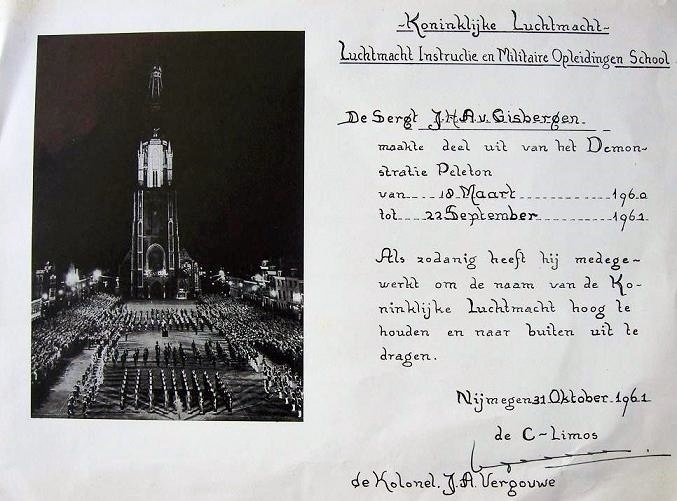 ~Koninklijke Luchtmacht~
Luchtmacht Instructie en Militaire Opleidingen School
De Sergt J.H.A. v. Gisbergen
maakte deel uit van het Demon-
stratie Peleton
van 18 Maart 1960
tot 22 September 1961
Als zodanig heeft hij medege-
werkt om de naam van de Ko-
ninklijke Luchtmacht hoog te
houden en naar buiten uit te
dragen.
Nijmegen 31 Oktober 1961
de C-Limos
de Kolonel. J.A. Vergouwe